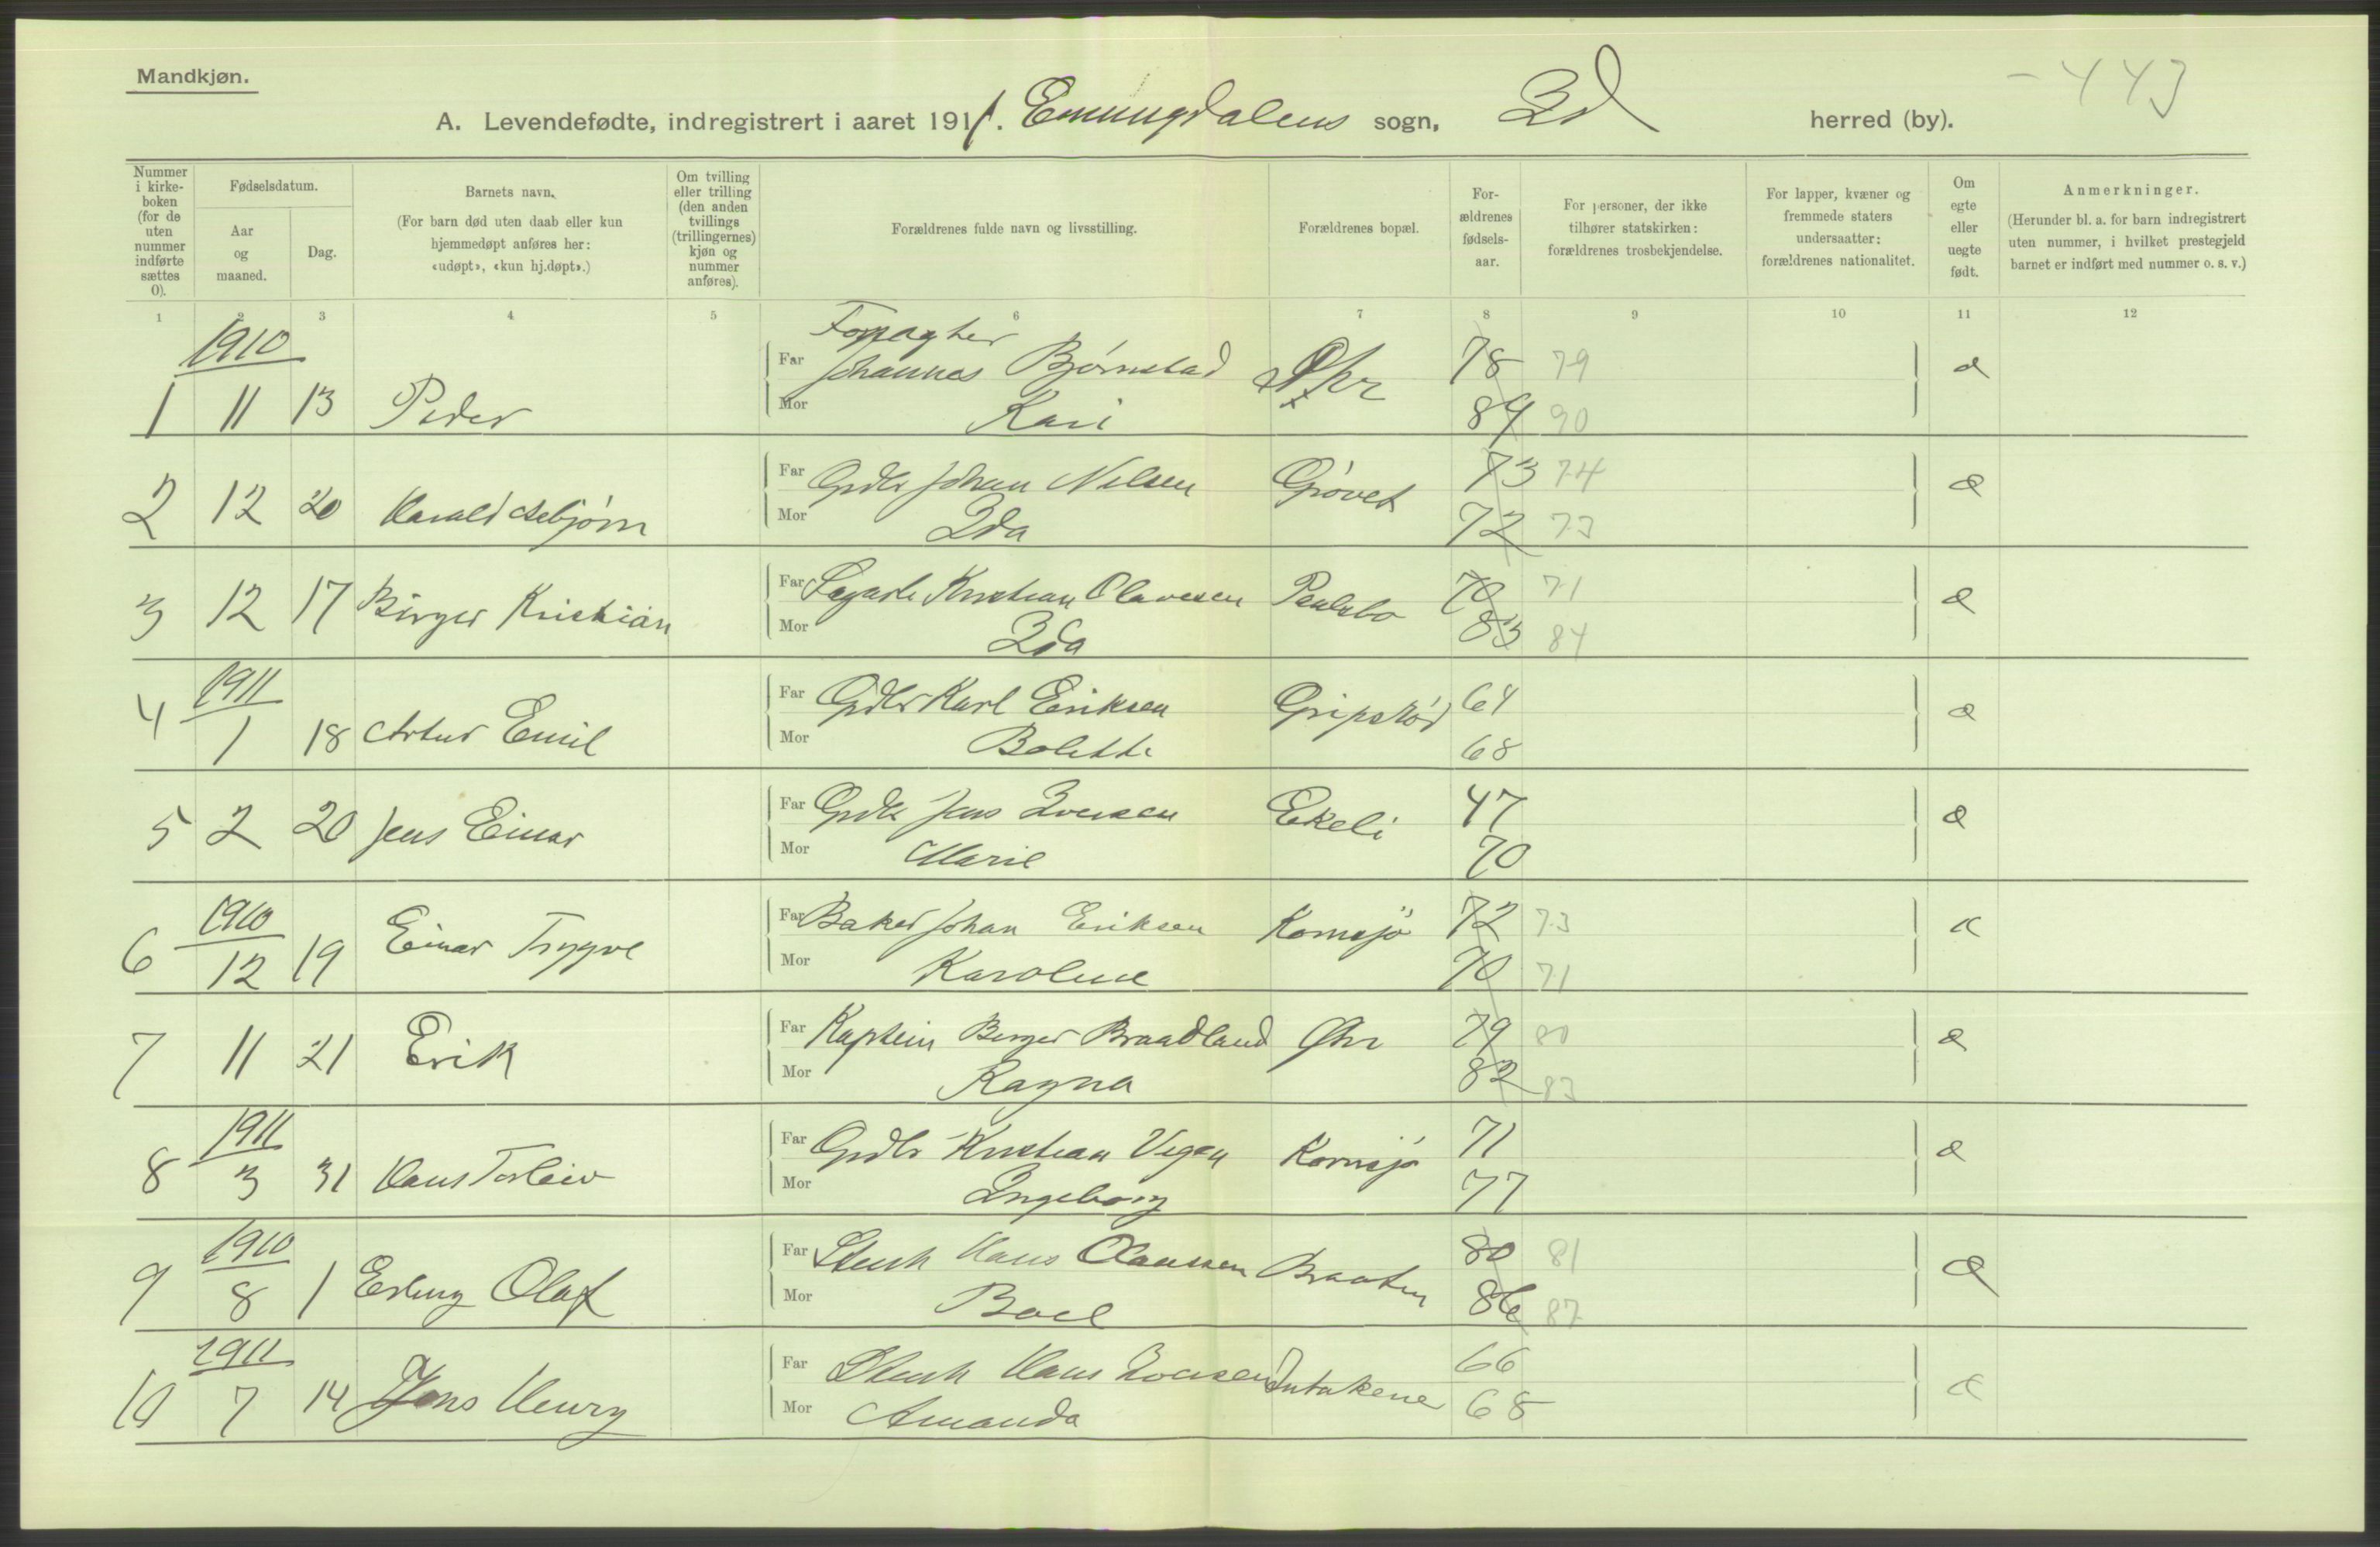 Mandkjøn.
- 443
A. Levendefødte, indregistrert i aaret 1911. Enningdalens sogn, Id herred (by).
Nummer i kirkeboken (for de uten nummer indførte sættes 0).
Fødselsdatum.
Aar og maaned.
Dag.
Barnets navn.
(For barn død uten daab eller kun hjemmedøpt anføres her: «udøpt», «kun hj.døpt».)
Om tvilling eller trilling (den anden tvillings (trillingernes) kjøn og nummer anføres).
Forældrenes fulde navn og livsstilling.
Forældrenes bopæl.
For-ældrenes fødsels-aar.
For personer, der ikke tilhører statskirken: forældrenes trosbekjendelse.
For lapper, kvæner og fremmede staters undersaatter: forældrenes nationalitet.
Om egte eller uegte født.
Anmerkninger.
(Herunder bl. a. for barn indregistrert uten nummer, i hvilket prestegjeld barnet er indført med nummer o. s. v.)
1 2 3 4 5 6 7 8 9 10 11 12
1910
Forpagter
Far Johannes Bjørnstad 78 79
1 11 13 Peder
Mor Kari 89 90
Far Grdbr Johan Nilsen Grøvet 73 74
2 12 20 Harald Asbjørn
Mor Ida 72 73
Far Kristian Olavesen Paulsbo 70 71
3 12 17 Birger Kristian
Mor Ida 83 84
1911
Far Grdbr Karl Eriksen Gripsrød 64
4 1 18 Artur Emil
Mor Bolette 68
Far Grdbr Jens Iversen Ekeli 47
5 2 20 Jens Einar
Mor Marie 70
1910
Far Baker Johan Eriksen Kornsjø 72 73
6 12 19 Einar Trygve
Mor Karoline 70 71
Far Kaptein Berger Braadland 79 80
7 11 21 Erik
Mor Ragna 82 83
1911
Far Grdbr Kristian Vigen Kornsjø 71
8 3 31 Hans Torleiv
Mor Ingeborg 77
1910
Far Stenh Hans Claussen Braaten 80 81
9 8 1 Erling Olaf
Mor Boel 86 87
1911
Far Stenh Hans Iversen Intakene 66
10 7 14 Jens Henry
Mor Amanda 68